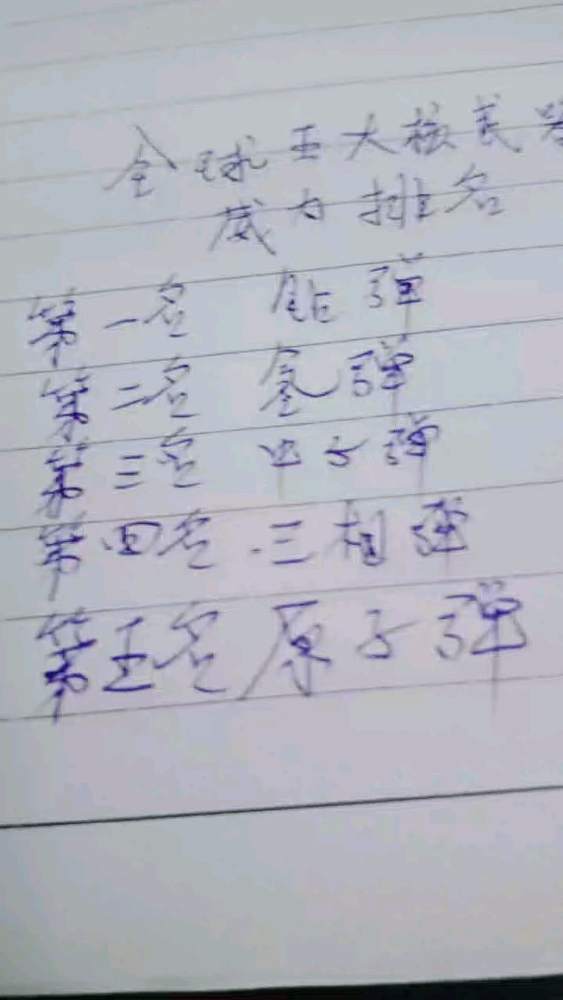 全球五大核武器
威力排名
第一名 钴弹
第二名 氢弹
第三名 中子弹
第四名 三相弹
第五名 原子弹